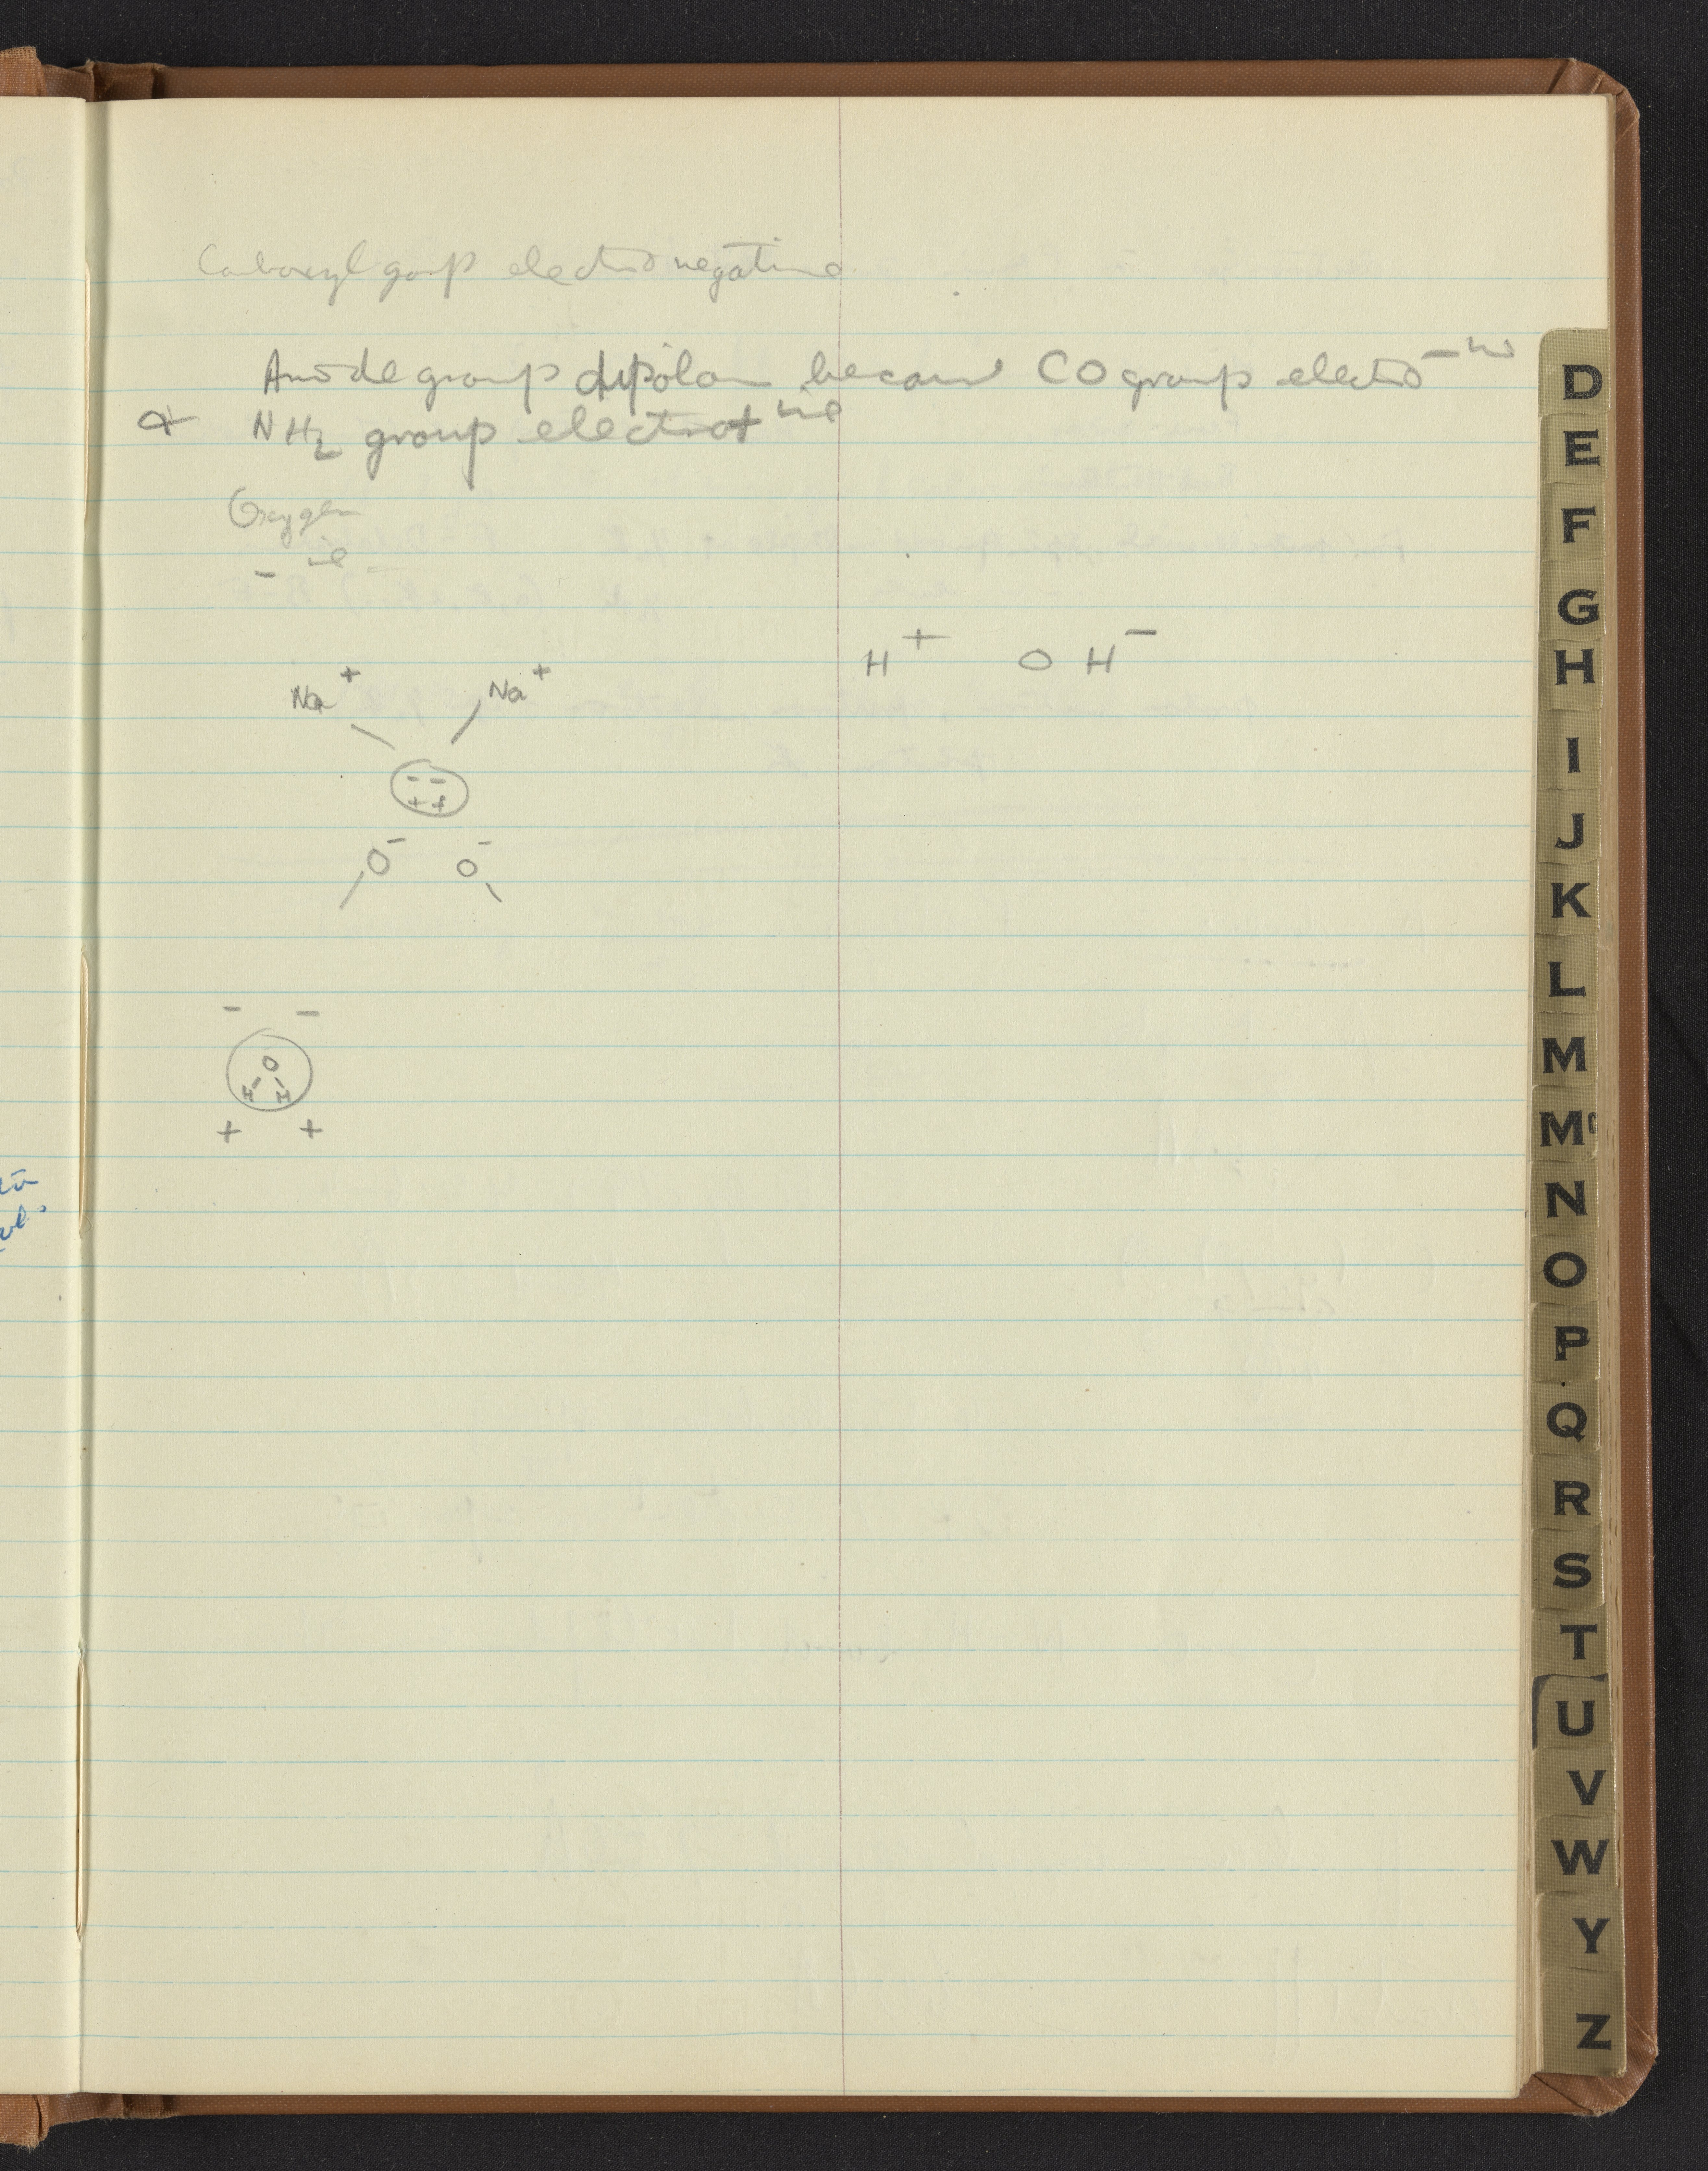 Carboxyl group electronegative
Amide group dipolar because CO group electro -ive
& NH2 group electro+ive
Oxygen
- ive
H+ OH-
Na+ Na+
- -
+ +
O- O-
- -
O
H H
+ +
D
E
F
G
H
I
J
K
L
M
Mc
N
O
P
Q
R
S
T
U
V
W
Y
Z